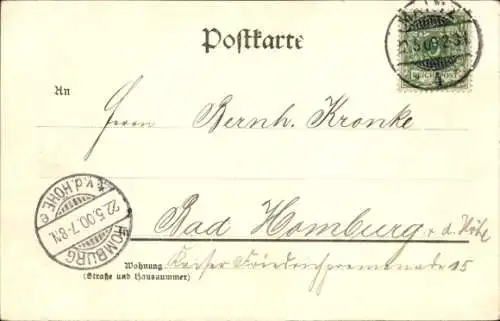 Postkarte
MAINZ
REICHSPOST
An
Herrn Bernh. Kronke
HOMBURG v.d. HÖHE e
22.5.00.7-8N.
Bad Homburg v. d. Höhe
Wohnung Kaiser Friedrichpromenade 15
(Straße und Hausnummer)